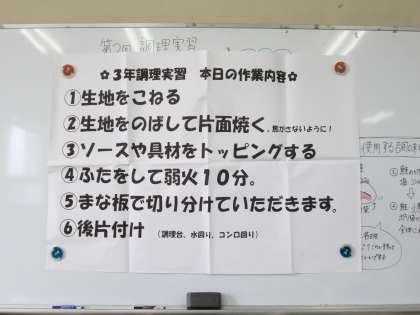 第2回 調理実習
☆３年調理実習　本日の作業内容☆
①生地をこねる
②生地をのばして片面焼く。焦がさないように！
③ソースや具材をトッピングする
④ふたをして弱火１０分。
⑤まな板で切り分けていただきます。
⑥後片付け　（調理台、水回り、コンロ回り）
使用する